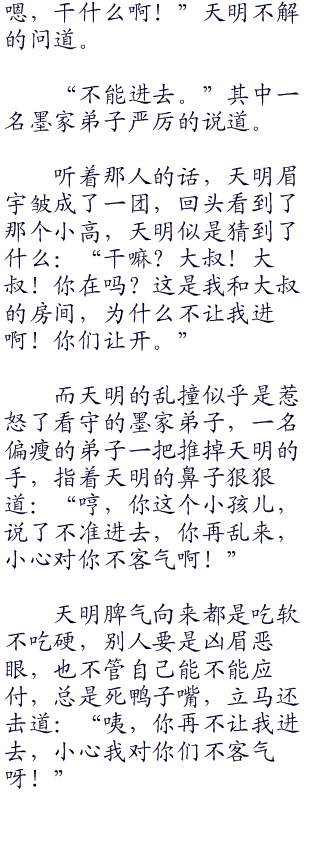 嗯，干什么啊！”天明不解
的问道。
“不能进去。”其中一
名墨家弟子严厉的说道。
听着那人的话，天明眉
宇皱成了一团，回头看到了
那个小高，天明似是猜到了
什么：“干嘛？大叔！大
叔！你在吗？这是我和大叔
的房间，为什么不让我进
啊！你们让开。”
而天明的乱撞似乎是惹
怒了看守的墨家弟子，一名
偏瘦的弟子一把推掉天明的
手，指着天明的鼻子狠狠
道：“哼，你这个小孩儿，
说了不准进去，你再乱来，
小心对你不客气啊！”
天明脾气向来都是吃软
不吃硬，别人要是凶眉恶
眼，也不管自己能不能应
付，总是死鸭子嘴，立马还
击道：“咦，你再不让我进
去，小心我对你们不客气
呀！”